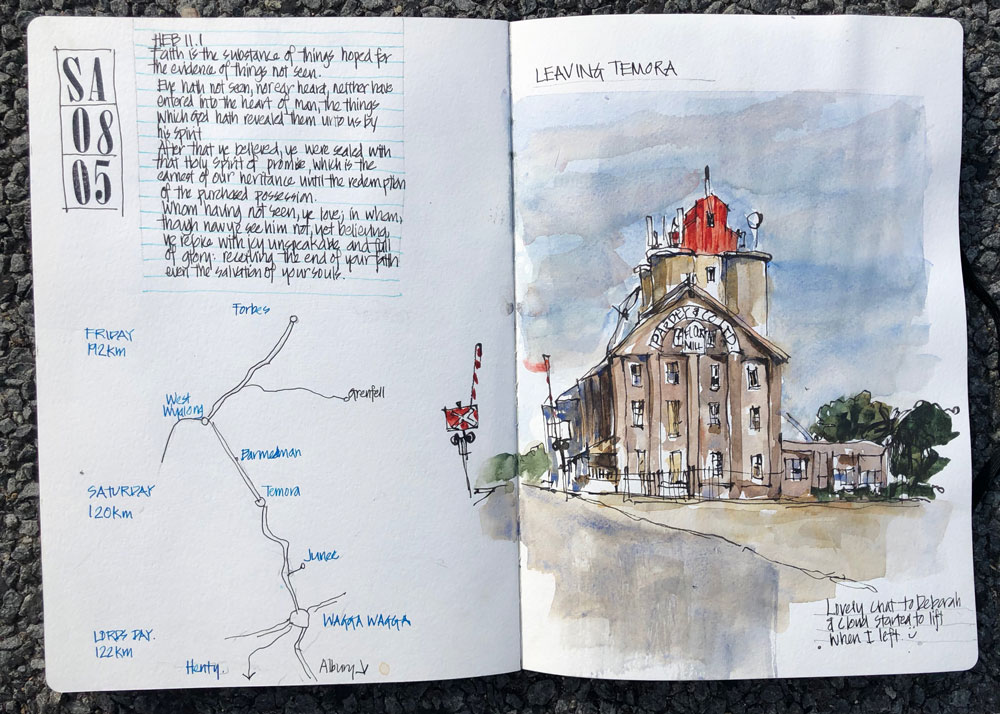 SA
08
05
HEB 11.1
Faith is the substance of things hoped for
the evidence of things not seen.
Eye hath not seen, nor ear heard, neither have
entered into the heart of man, the things
which God hath revealed them unto us by
his spirit
After that ye believed, ye were sealed with
that Holy Spirit of promise, which is the
earnest of our heritance until the redemption
of the purchased possession.
Whom having not seen, ye love; in whom,
though now ye see him not, yet believing,
ye rejoice with joy unspeakable and full
of glory: receiving the end of your faith
even the salvation of your souls.
Forbes
FRIDAY
192km
Grenfell
West
Wyalong
Barmedman
SATURDAY
120km
Temora
Junee
WAGGA WAGGA
LORDS DAY.
122km
Henty
Albury
LEAVING TEMORA
& CO LTD
FLOUR
MILL
Lovely chat to Deborah
& cloud started to lift
when I left.